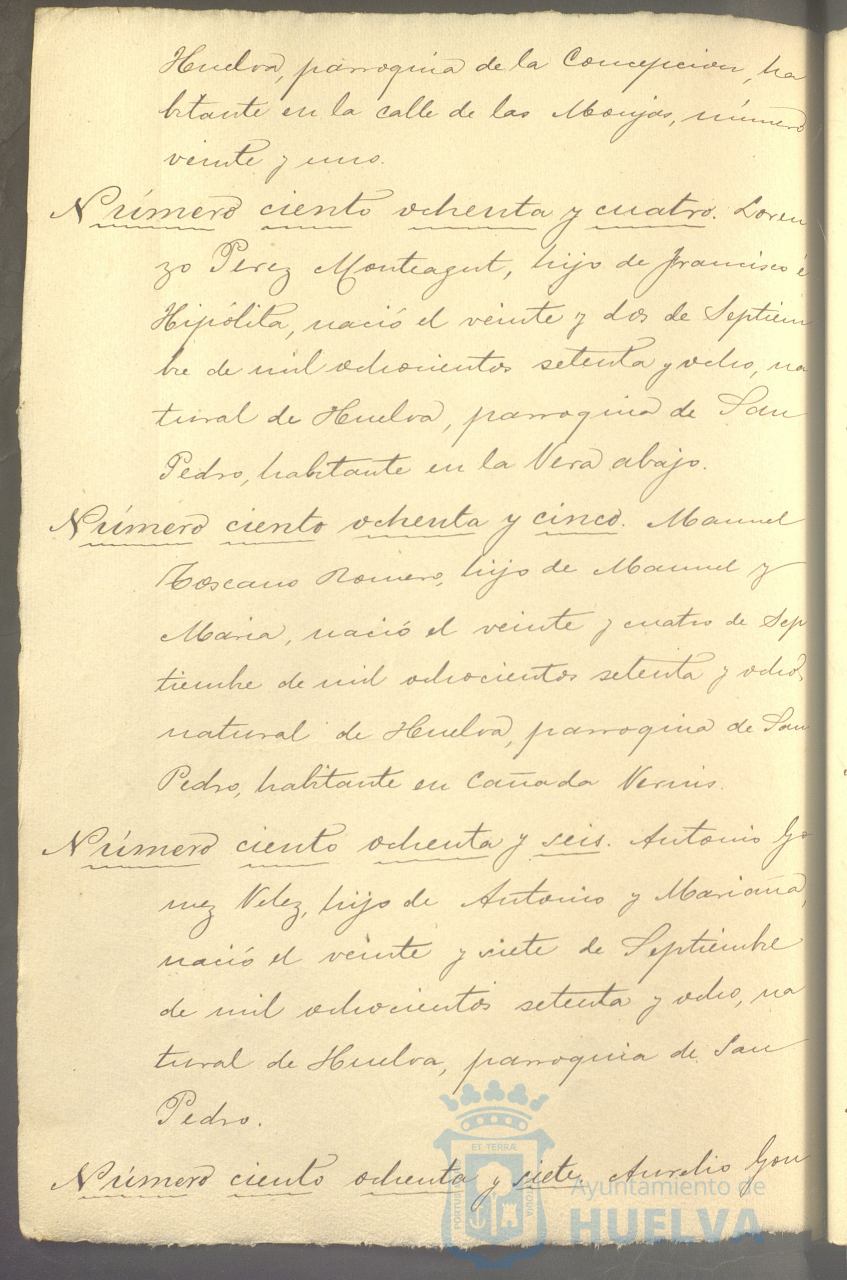 Huelva, parroquia de la Concepcion, ha
bitante en la calle de las Monjas, número
veinte y uno.
Número ciento ochenta y cuatro. Loren
zo Perez Monteagut, hijo de Francisco é
Hipólita, nació el veinte y dos de Septiem
bre de mil ochocientos setenta y ocho, na
tural de Huelva, parroquia de San
Pedro, habitante en la Vera abajo.
Número ciento ochenta y cinco. Manuel
Toscano Romero, hijo de Manuel y
Maria, nació el veinte y cuatro de Sep
tiembre de mil ochocientos setenta y ocho,
natural de Huelva, parroquia de San
Pedro, habitante en Cañada
Número ciento ochenta y seis. Antonio Go
mez Velez, hijo de Antonio y Mariana,
nació el veinte y siete de Septiembre
de mil ochocientos setenta y ocho, na
tural de Huelva, parroquia de San
Pedro.
Número ciento ochenta y siete. Aurelio Gon
ET TERRÆ
Ayuntamiento de
HUELVA